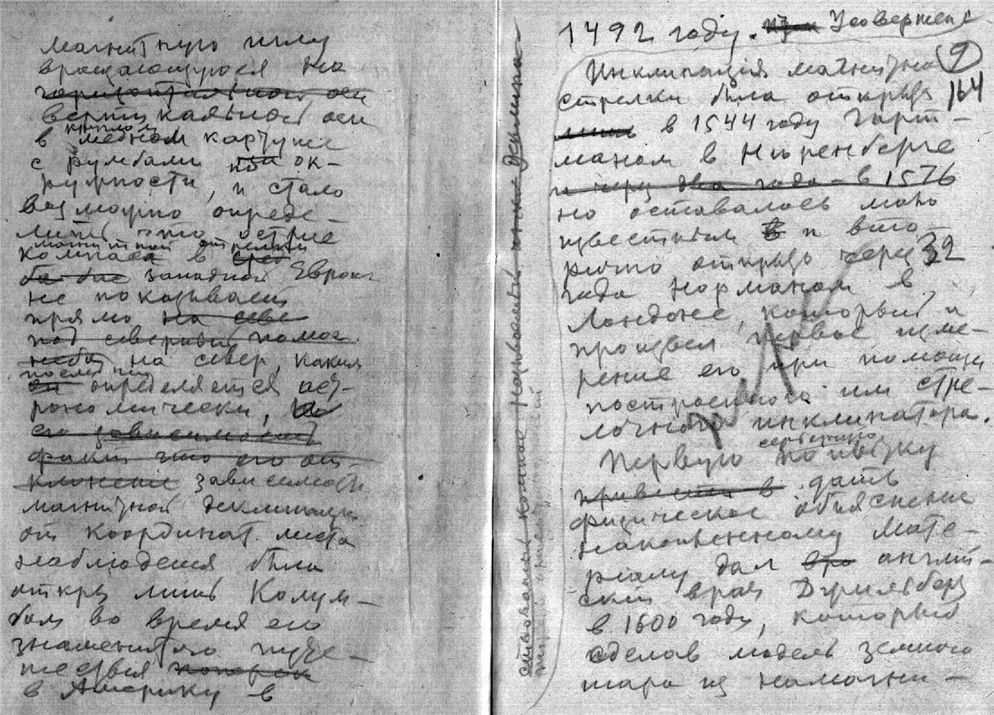 магнитную иглу
вращающуюся на
горизонтальной оси
вертикальной оси
в круглом медном картуше
с румбами по ок-
ружности, и стало
возможно опреде-
лить что острие
магнитной стрелки
компаса в
западной Европе
не показывает
прямо на севе
под северный полюс.
на север, каким
последний
определяется аст-
рономически,
его зависимость
факт что его от-
клонение зависимость
магнитной деклинации
от координат места
наблюдения была
открыта лишь Колум-
бом во время его
знаменитого путе-
шествия
в Америку в
1492 году. Усовершенс
ствовали компас
Инклинация магнитной 9
стрелки была открыта 164
лишь в 1544 году Гарт-
маном в Нюренберге
и через два года в 1576
но оставалось мало
известным и вто-
рично открыта через 32
года Норманом в
Лондоне, который и
произвел первое изме-
рение его при помощи
построенного им стре-
лочного инклинатора.
Первую серьезную попытку
привести в дать
физическое объяснение
накопленному мате-
риалу дал англий-
ский врач Джильберт
в 1600 году, который
сделав модель земного
шара из намагни-